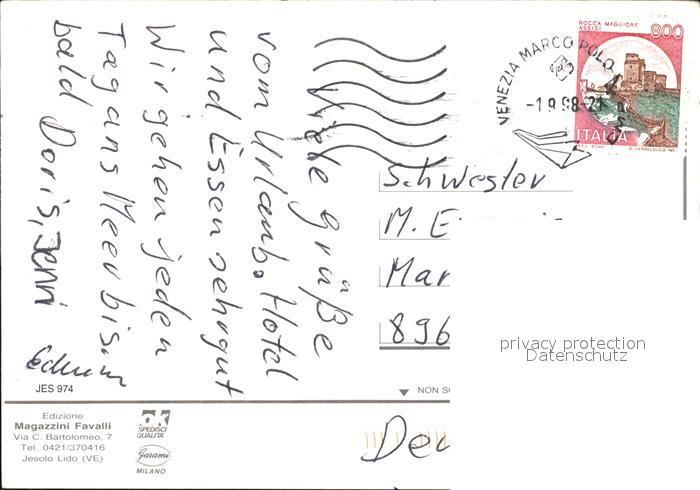 Viele Grüße
vom Urlaub. Hotel
und Essen sehr gut
Wir gehen jeden
Tag ans Meer bis
bald Doris, Jenni
Schwester
M. E
Mar
896
Deu
ROCCA MAGGIORE
ASSISI
800
ITALIA
VENEZIA MARCO POLO
-1.9.98-21
privacy protection
Datenschutz
JES 974
NON S
Edizione
Magazzini Favalli
Via C. Bartolomeo, 7
Tel. 0421/370416
Jesolo Lido (VE)
ok
SPEDISCI
QUALITA'
Garami
MILANO